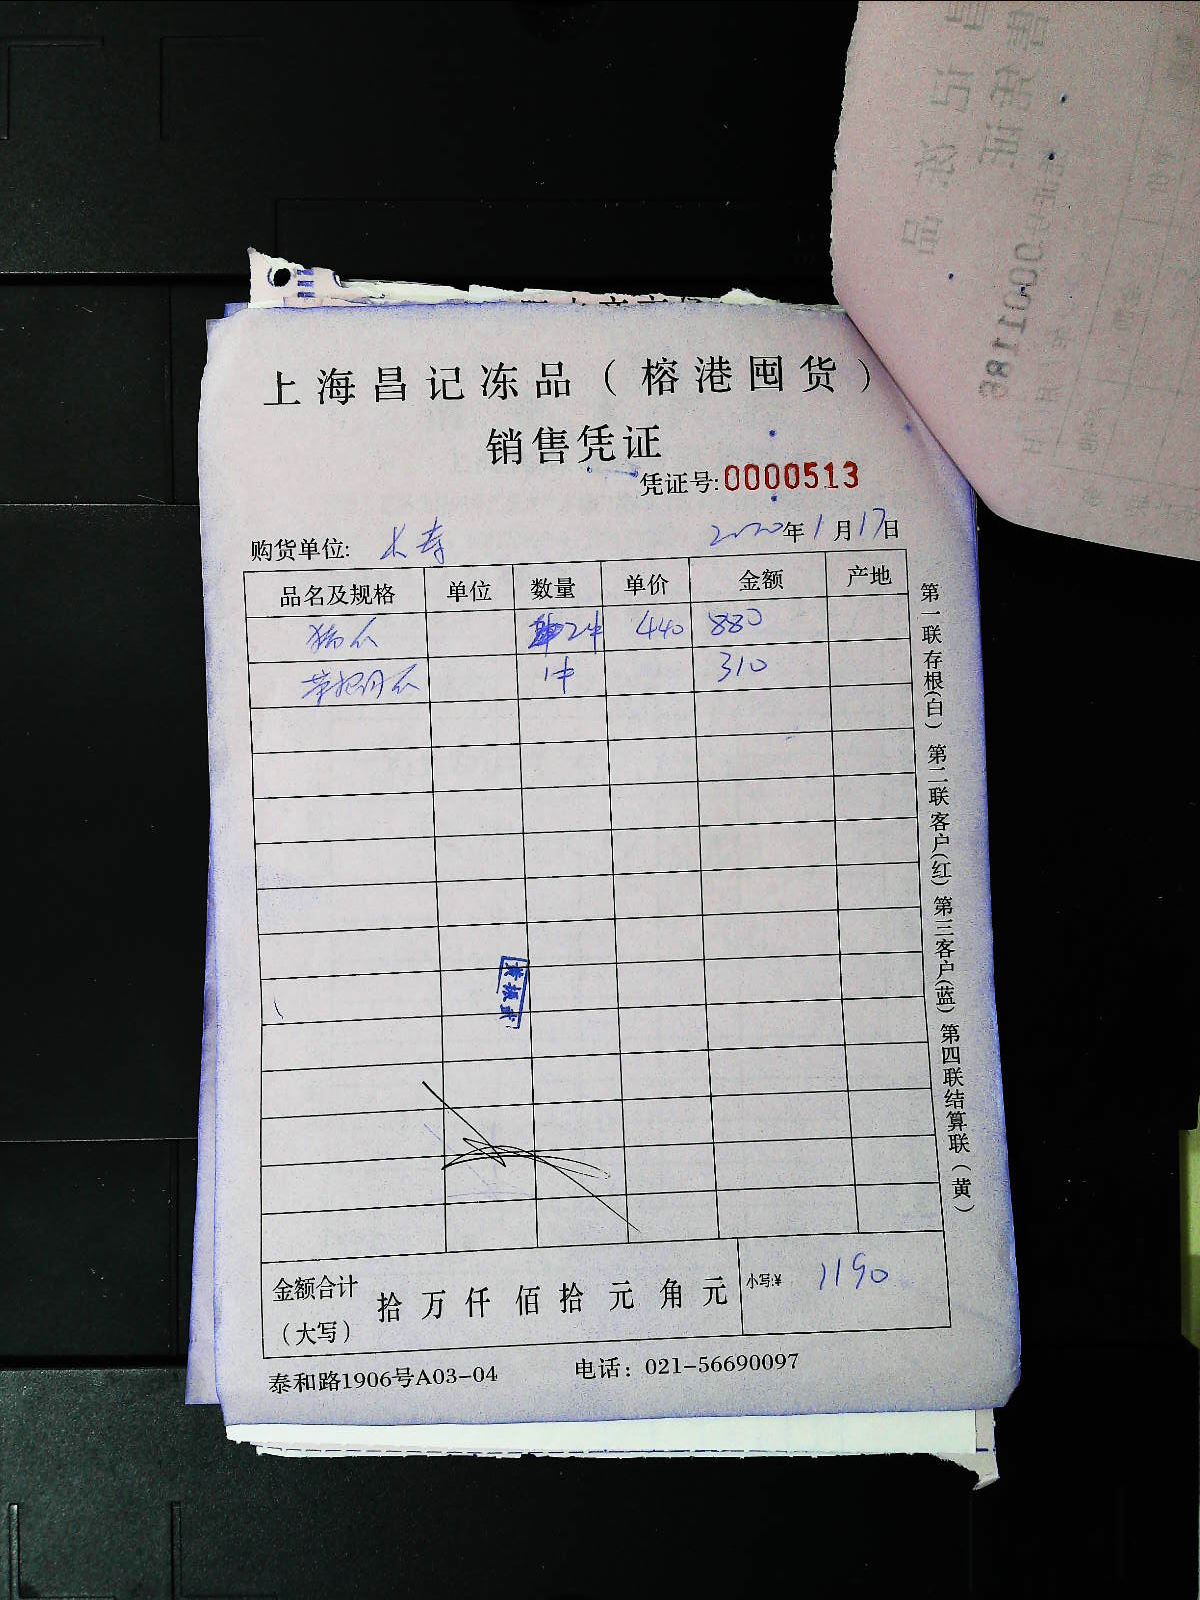 上海昌记冻品（榕港囤货）
销售凭证
凭证号:0000513
购货单位: 2020年1月17日
品名及规格 单位 数量 单价 金额 产地
2件 440 880
1件 310
金额合计（大写） 拾万仟佰拾元角元 小写:¥ 1190
泰和路1906号A03-04 电话：021-56690097
第一联存根(白) 第二联客户(红) 第三客户(蓝) 第四联结算联（黄）
0001186